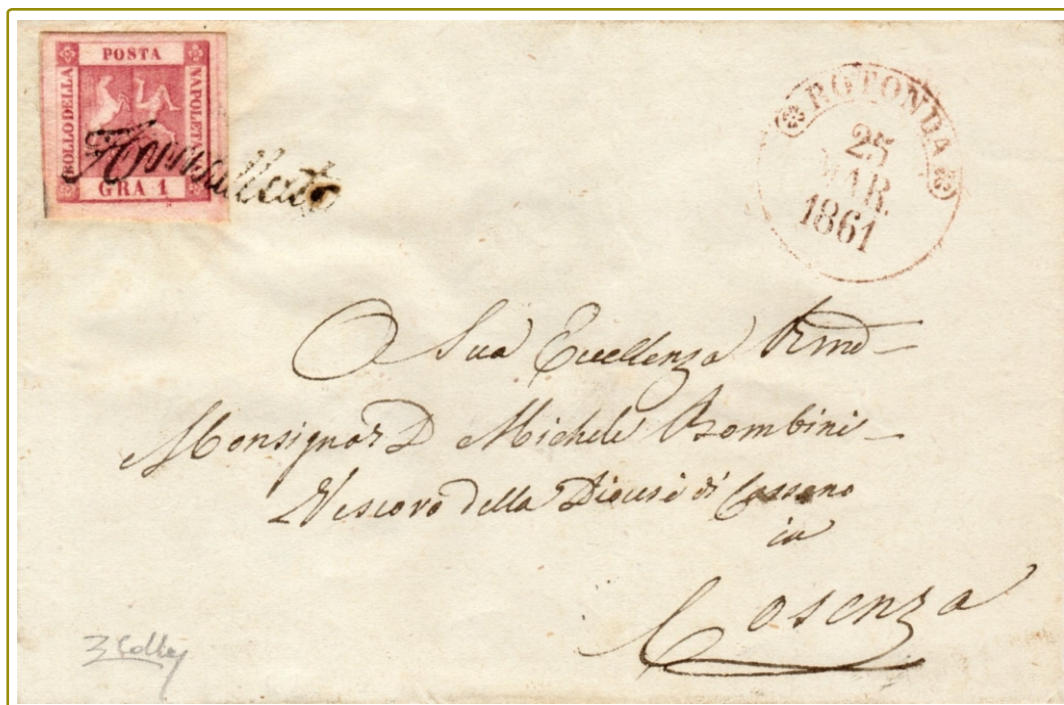 POSTA
BOLLO DELLA
NAPOLETA
GRA 1
Annullato
ROTONDA
25
MAR.
1861
A Sua Eccellenza Rmd
Monsignor D Michele Bombini
Vescovo della Diocesi di Cassano
in
Cosenza